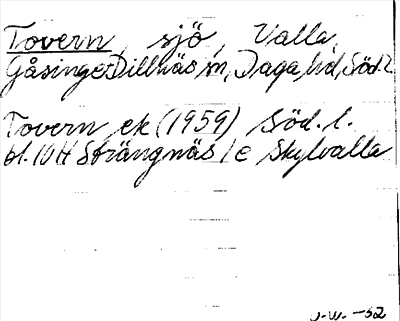 Tovern, sjö, Valla,
Gåsinge-Dillnäs sn, Daga hd, Söd. l.
Tovern ek (1959) Söd. l.
bl. 10H Strängnäs / e Skylvalla
J.W. -52